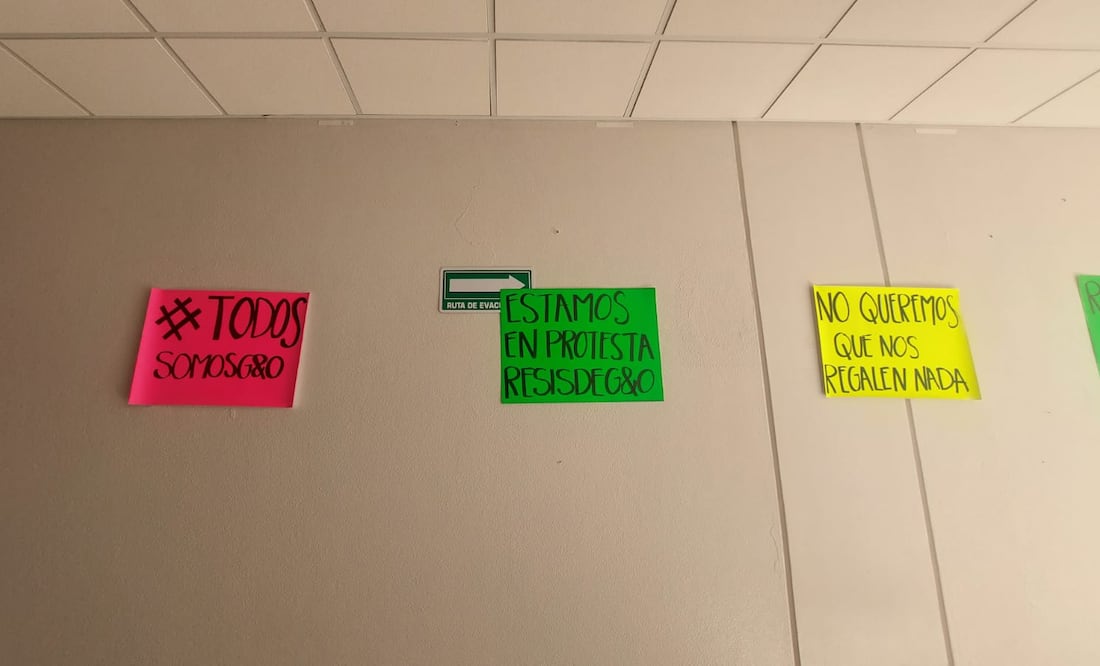 # TODOS
SOMOSG&O
RUTA DE EVAC
ESTAMOS
EN PROTESTA
RESISDEG&O
NO QUEREMOS
QUE NOS
REGALEN NADA
R